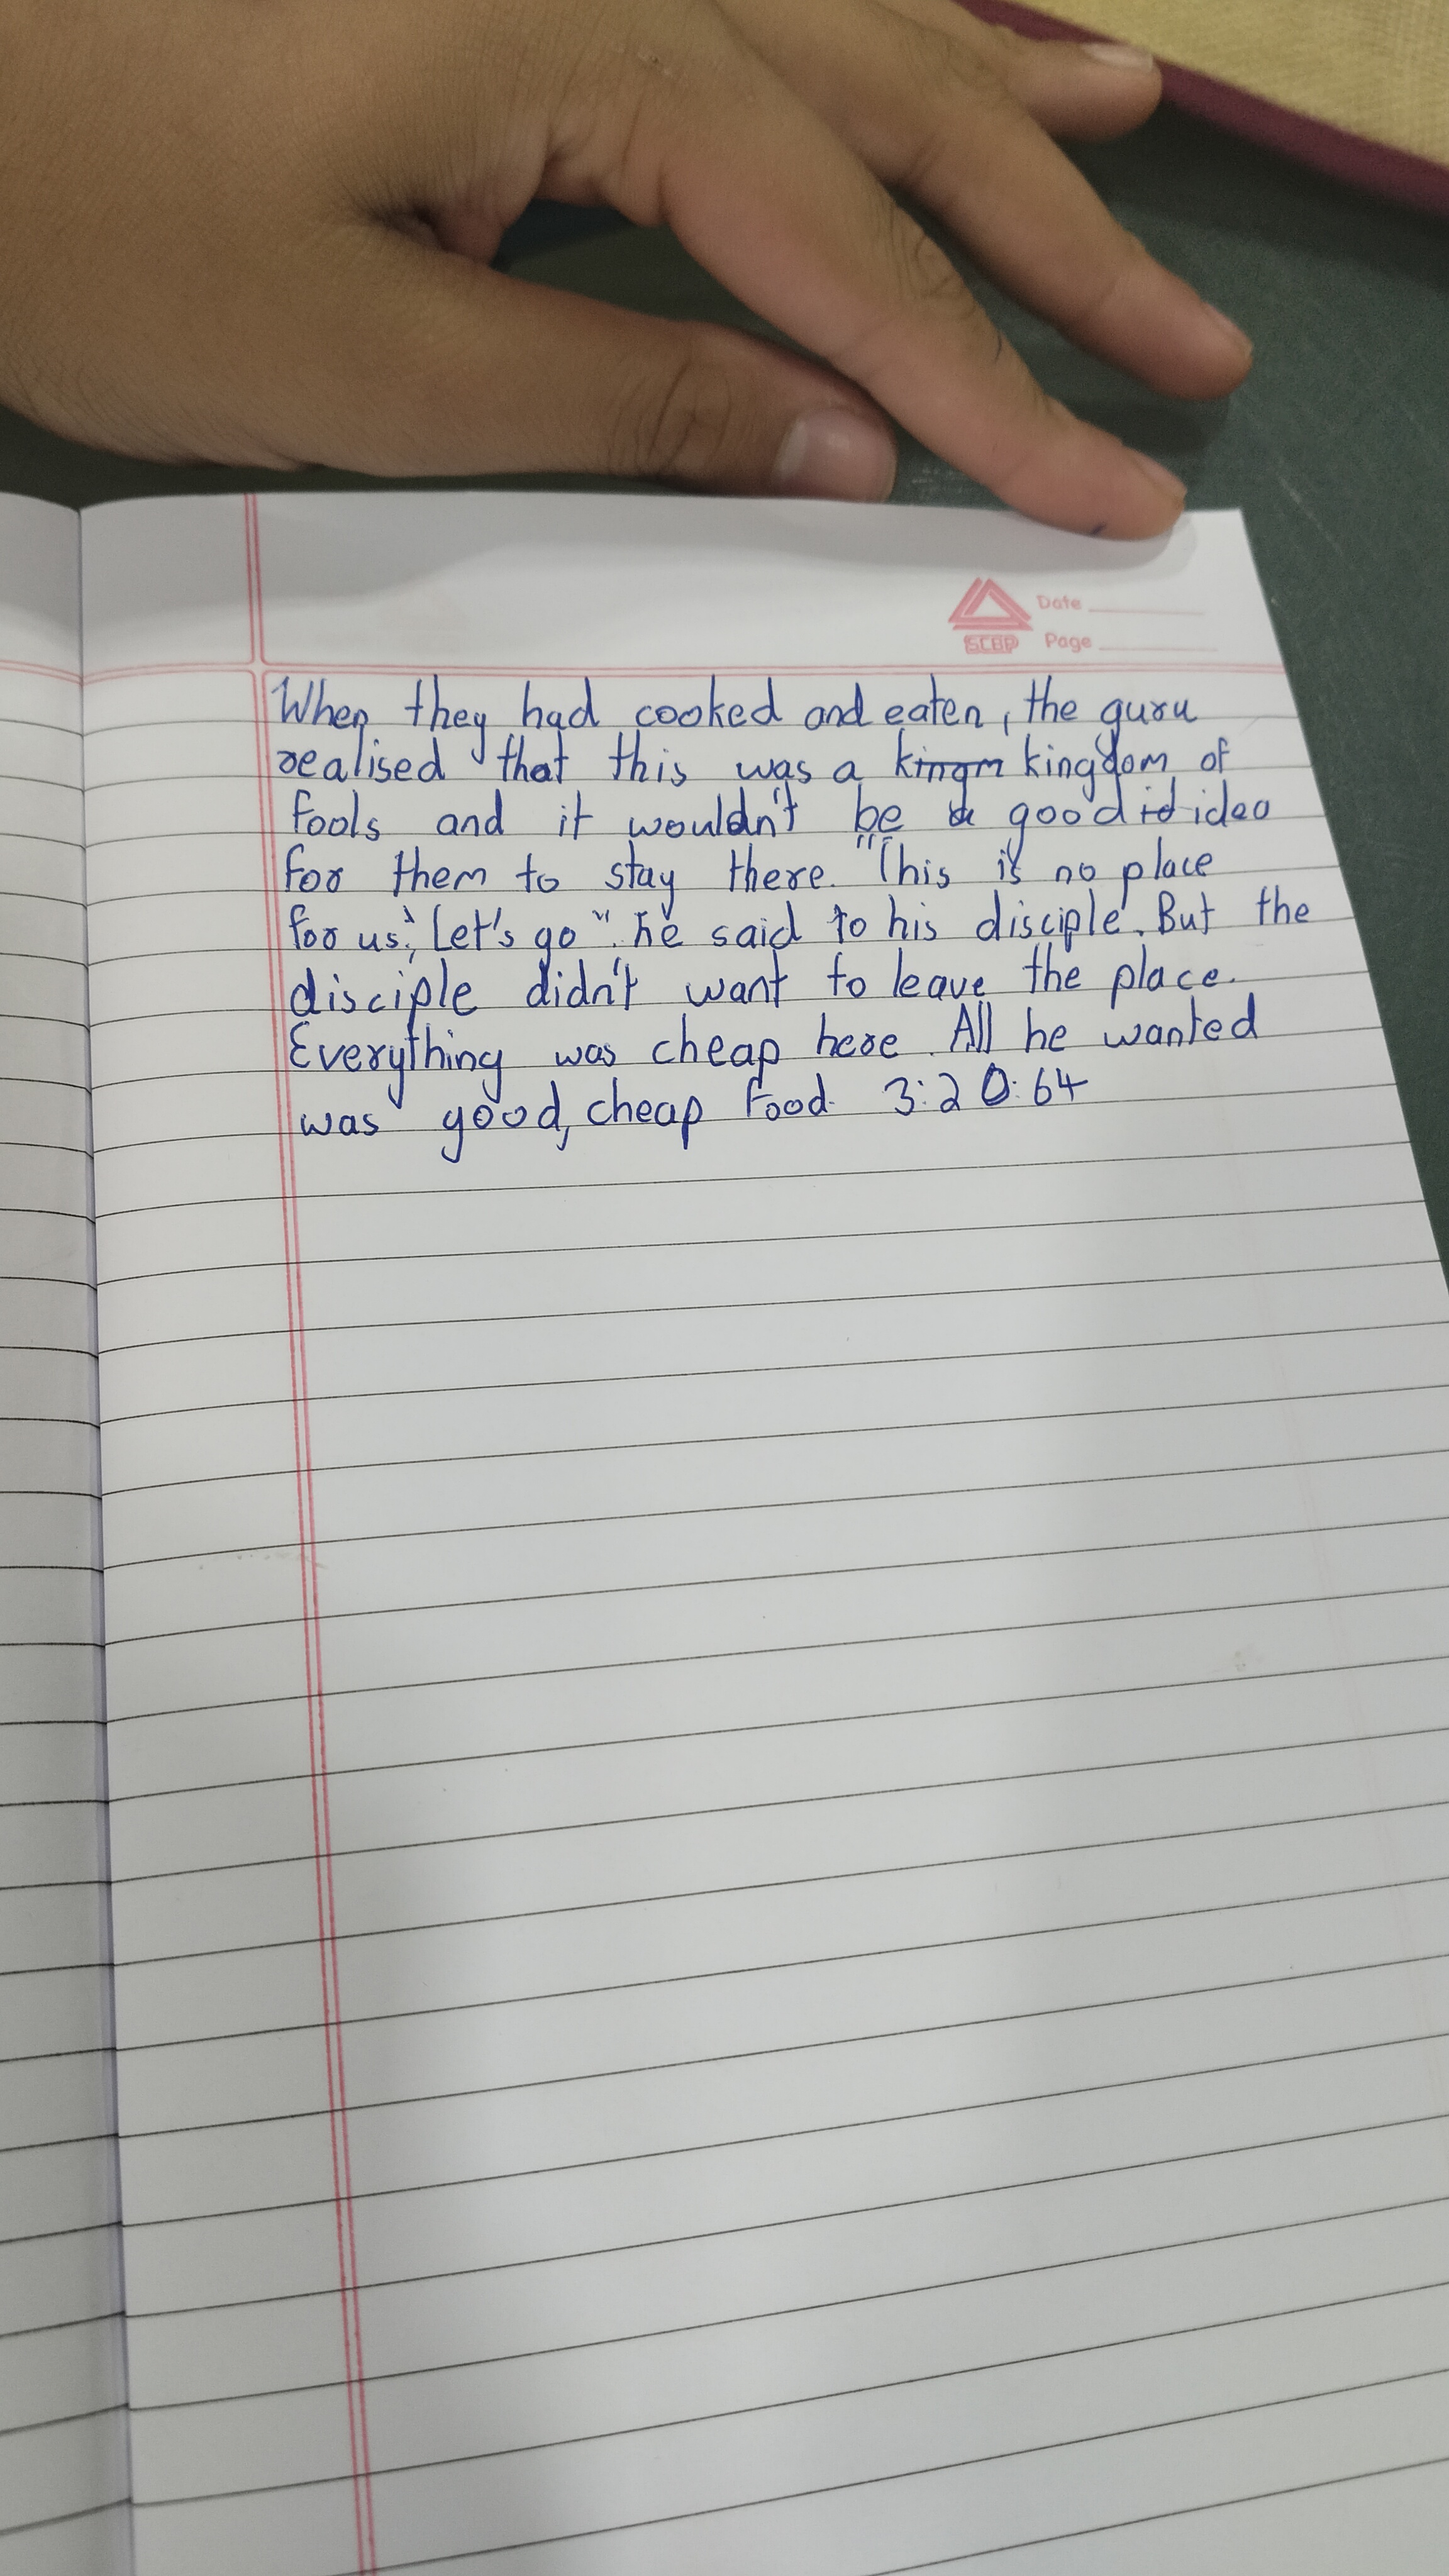 SCBP
Date
Page
When they had cooked and eaten, the guru
realised that this was a kingm kingdom of
fools and it wouldn't be a good id idea
for them to stay there. "This is no place
for us, Let's go". he said to his disciple. But the
disciple didn't want to leave the place.
Everything was cheap here. All he wanted
was good, cheap food. 3:20:64